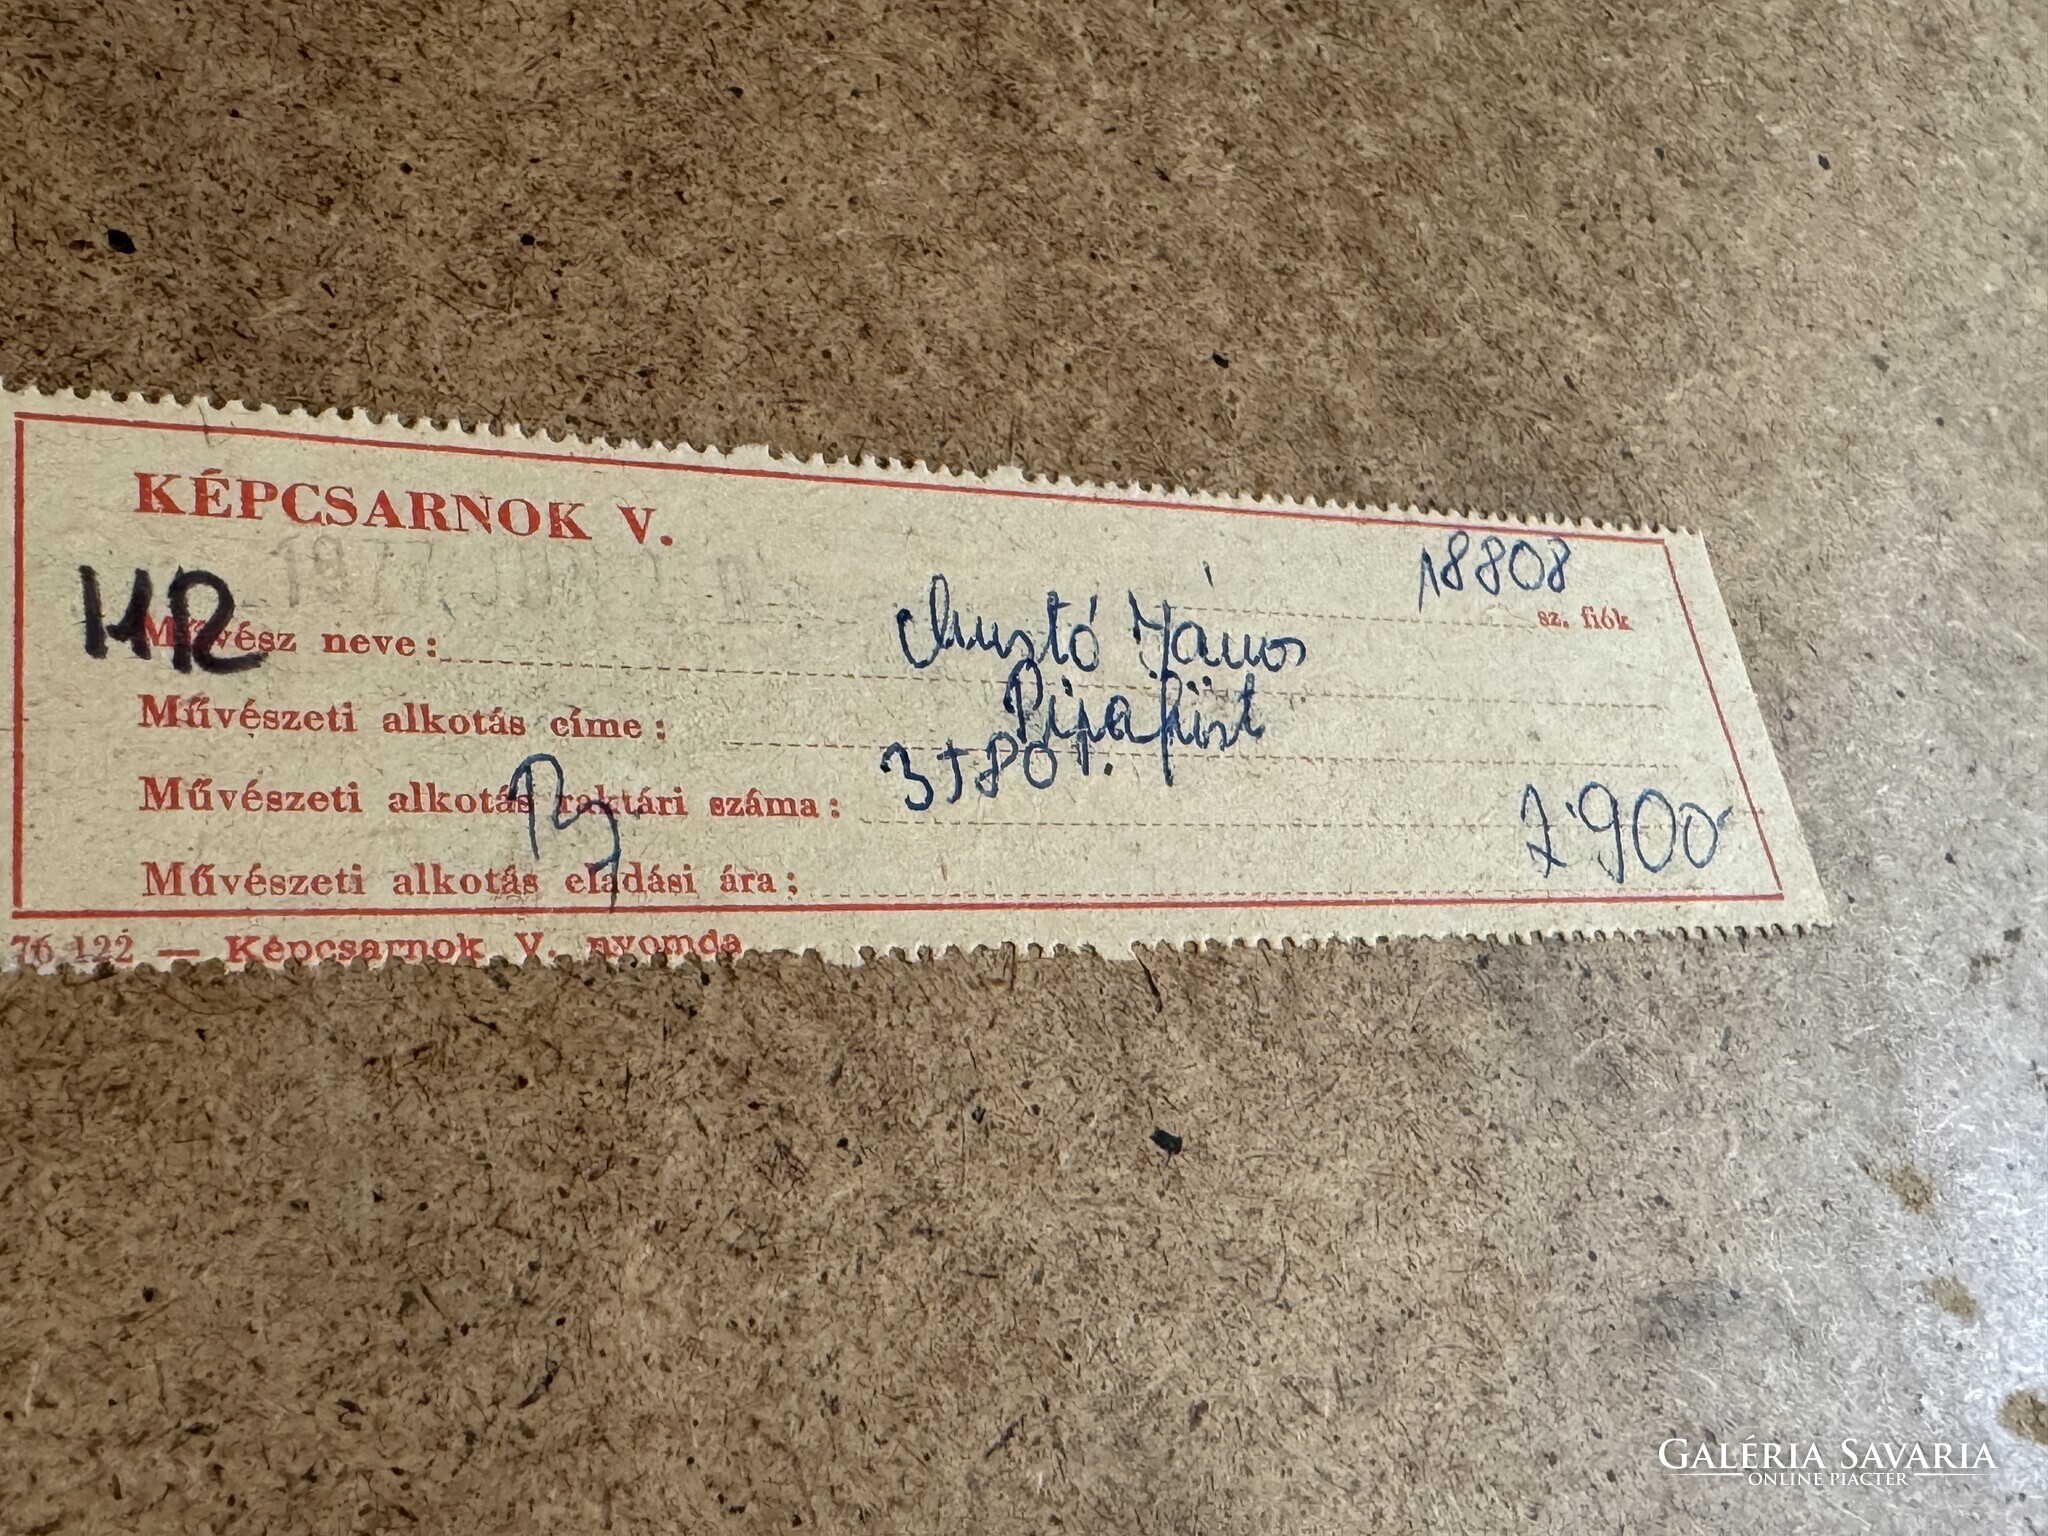 KÉPCSARNOK V.
18808 sz. fiók
HR
Művész neve: Musztó János
Művészeti alkotás címe: Pipafüst
Művészeti alkotás raktári száma:
Művészeti alkotás eladási ára: 2900
76 122 — Képcsarnok V. nyomda
GALÉRIA SAVARIA
ONLINE PIACTÉR